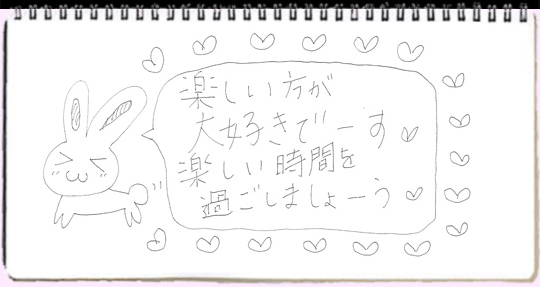 楽しい方が
大好きでーす♡
楽しい時間を
過ごしましょーう♡